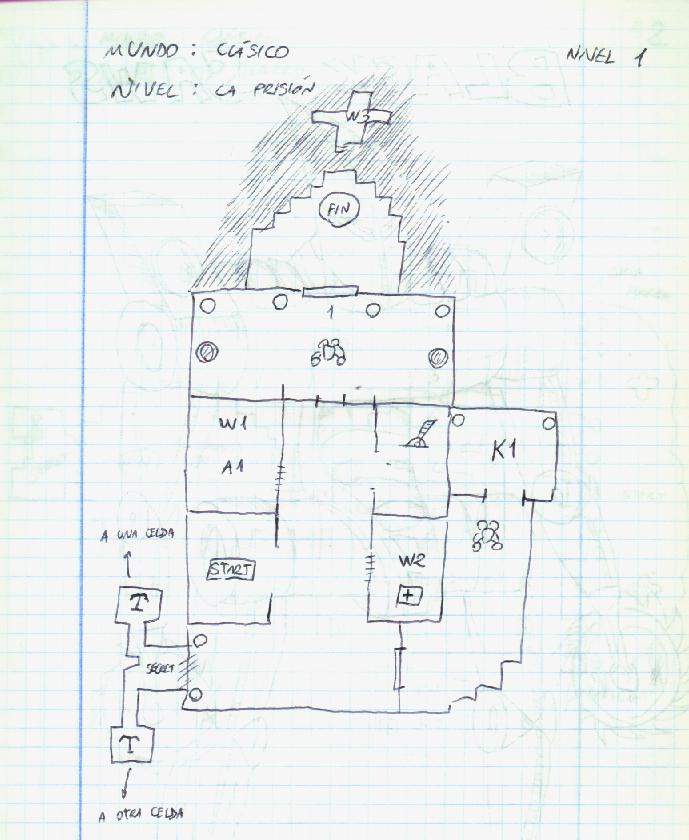 MUNDO : CLÁSICO
NIVEL 1
NIVEL : LA PRISIÓN
W3
FIN
1
W1
A1
K1
A UNA CELDA
START
W2
+
T
SECRET
T
A OTRA CELDA